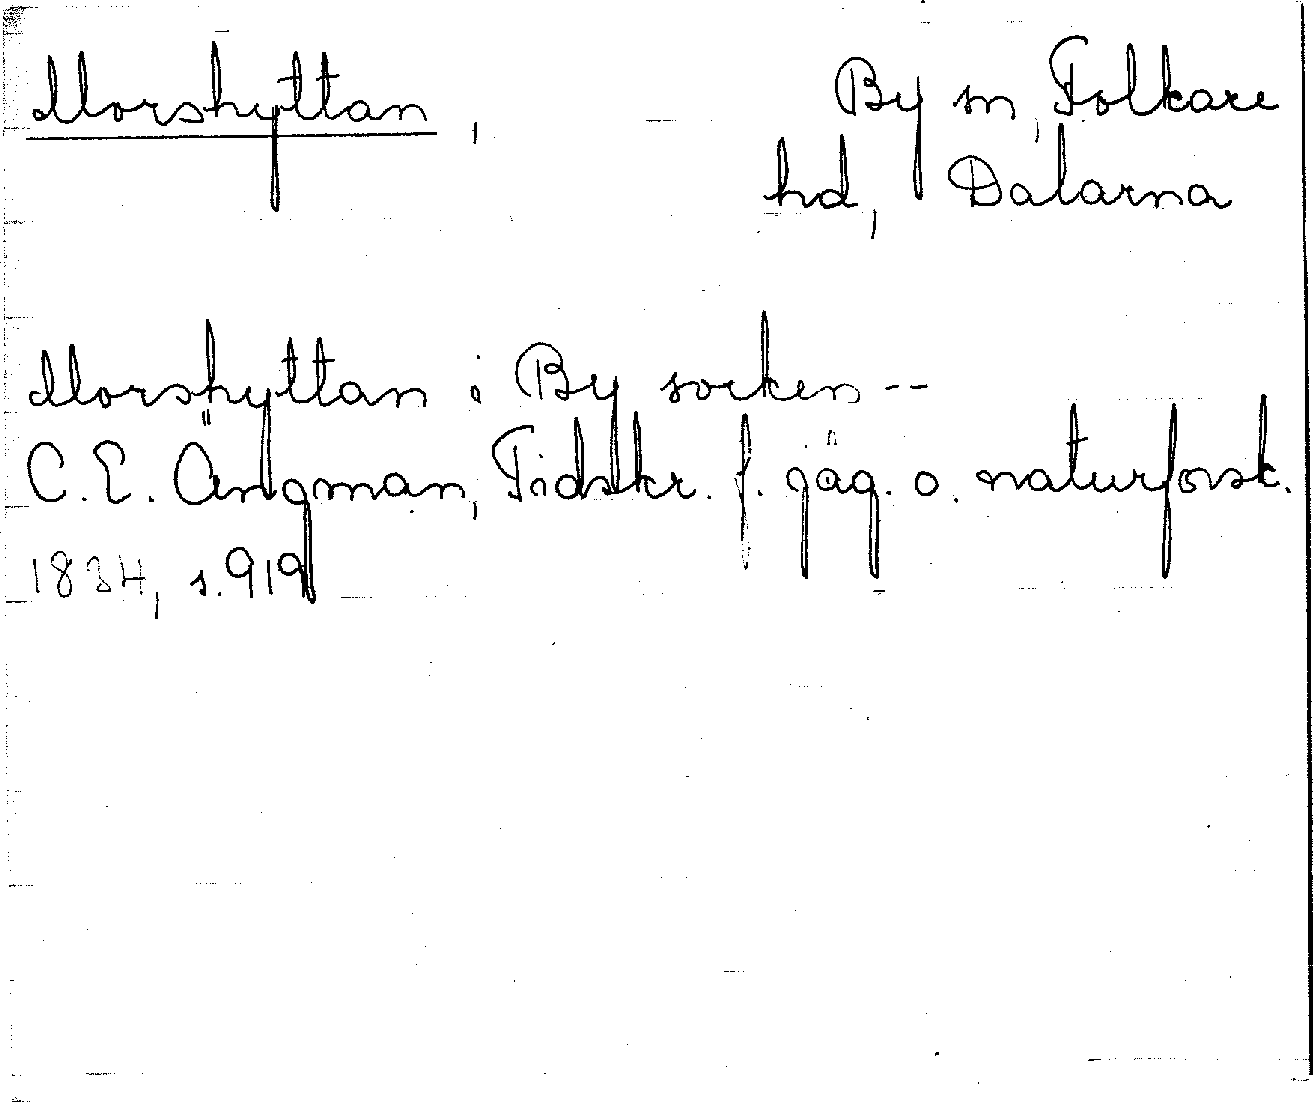 Morshyttan, By sn, Folkare
hd, Dalarna
Morshyttan i By socken --
C. E. Ängman, Tidskr. f. jäg. o. naturforsk.
1834, s. 919